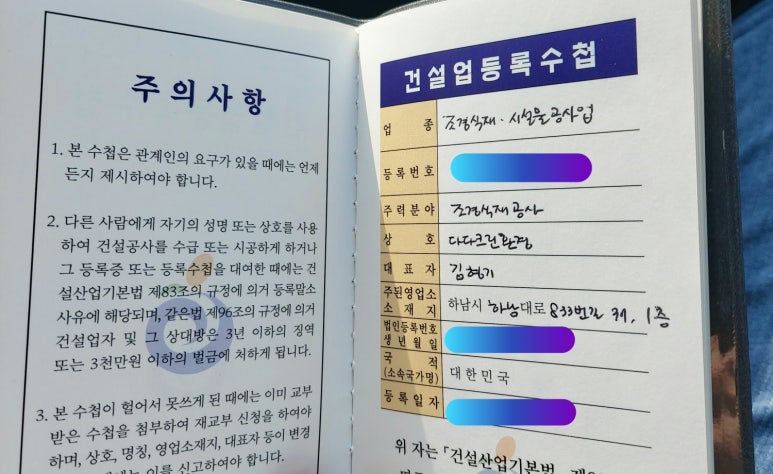 주의사항
1. 본 수첩은 관계인의 요구가 있을 때에는 언제
든지 제시하여야 합니다.
2. 다른 사람에게 자기의 성명 또는 상호를 사용
하여 건설공사를 수급 또는 시공하게 하거나
그 등록증 또는 등록수첩을 대여한 때에는 건
설산업기본법 제83조의 규정에 의거 등록말소
사유에 해당되며, 같은법 제96조의 규정에 의거
건설업자 및 그 상대방은 3년 이하의 징역
또는 3천만원 이하의 벌금에 처하게 됩니다.
3. 본 수첩이 헐어서 못쓰게 된 때에는 이미 교부
받은 수첩을 첨부하여 재교부 신청을 하여야
하며, 상호, 명칭, 영업소재지, 대표자 등이 변경
이를 신고하여야 합니다.
건설업등록수첩
업종 조경식재·시설물공사업
등록번호
주력분야 조경식재공사
상호
대표자 김형기
주된영업소
소재지 하남시 하남대로 833번길 1층
법인등록번호
생년월일
국적
(소속국가명) 대한민국
등록일자
위 자는 「건설산업기본법